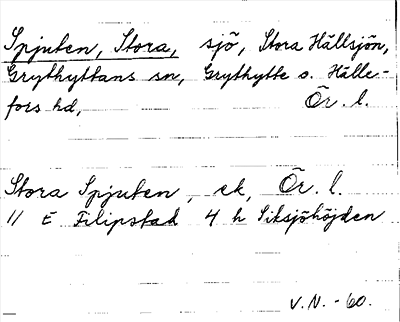 Spjuten, Stora, sjö, Stora Hällsjön,
Grythyttans sn, Grythytte o. Hälle-
fors hd, Ör. l.
Stora Spjuten, ek, Ör. l.
11 E Filipstad 4 h Siksjöhöjden
V.N. -60.